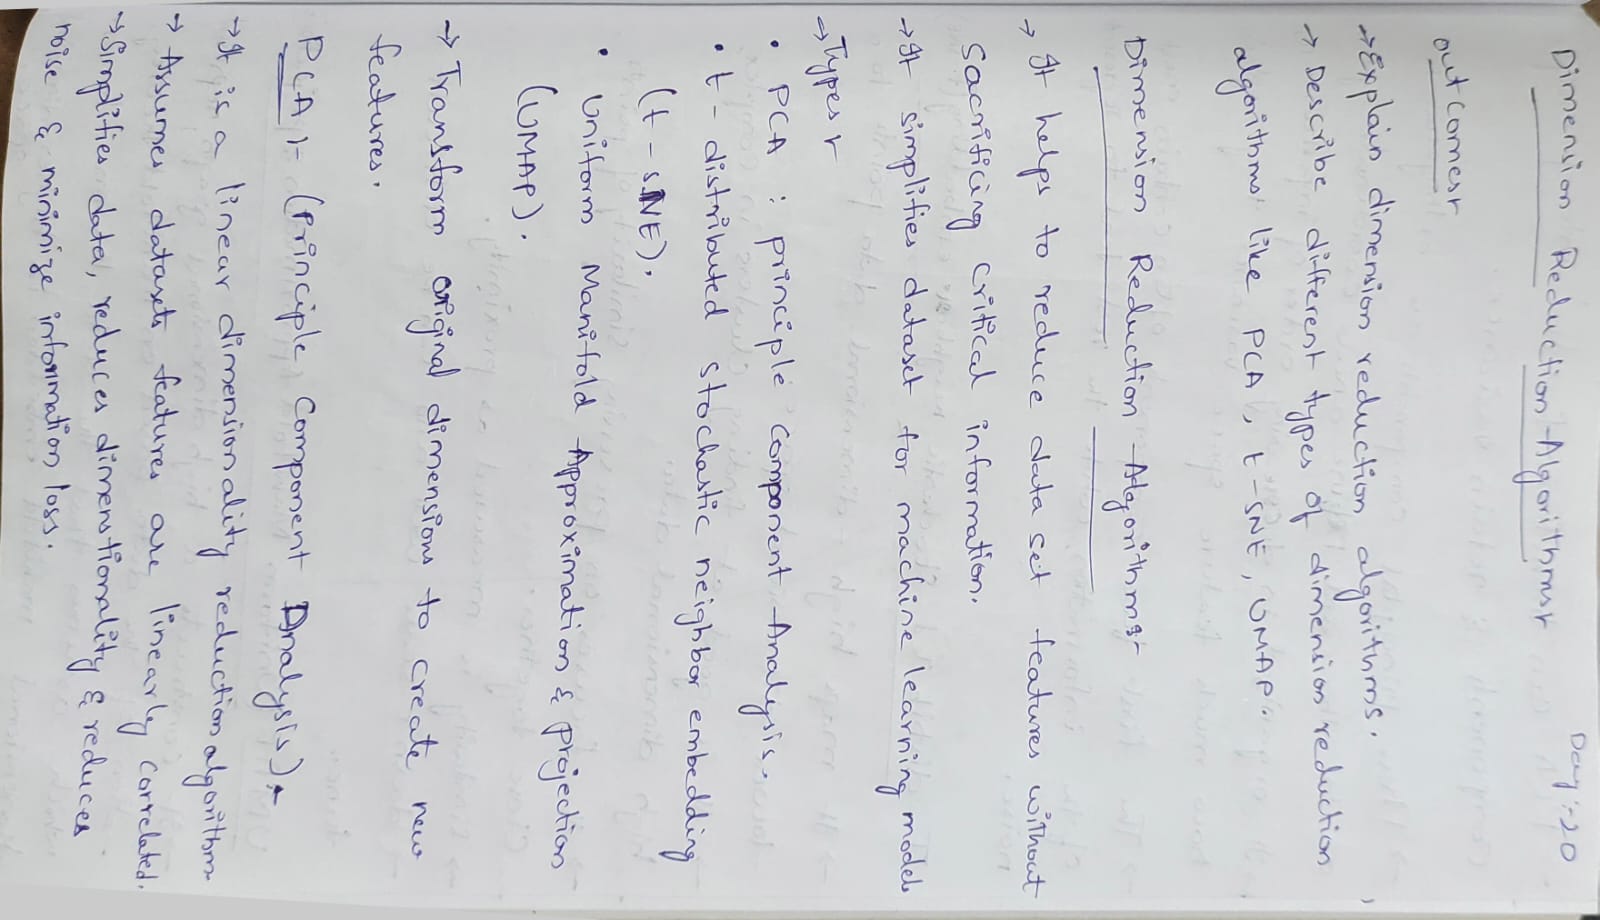 Day :- 20
Dimension Reduction Algorithms:-
outcomes:-
→ Explain dimension reduction algorithms.
→ Describe different types of dimension reduction
algorithms like PCA, t-SNE, UMAP.
Dimension Reduction Algorithms:-
→ It helps to reduce data set features without
sacrificing critical information.
→ It simplifies dataset for machine learning models
→ Types :-
• PCA : principle Component Analysis.
• t - distributed stochastic neighbor embedding
(t - SNE).
• Uniform Manifold Approximation & projection
(UMAP).
→ Transform original dimensions to create new
features.
PCA :- (Principle Component Analysis) :-
→ It is a linear dimensionality reduction algorithm
→ Assumes datasets features are linearly correlated.
→ Simplifies data, reduces dimenstionality & reduces
noise & minimize information loss.